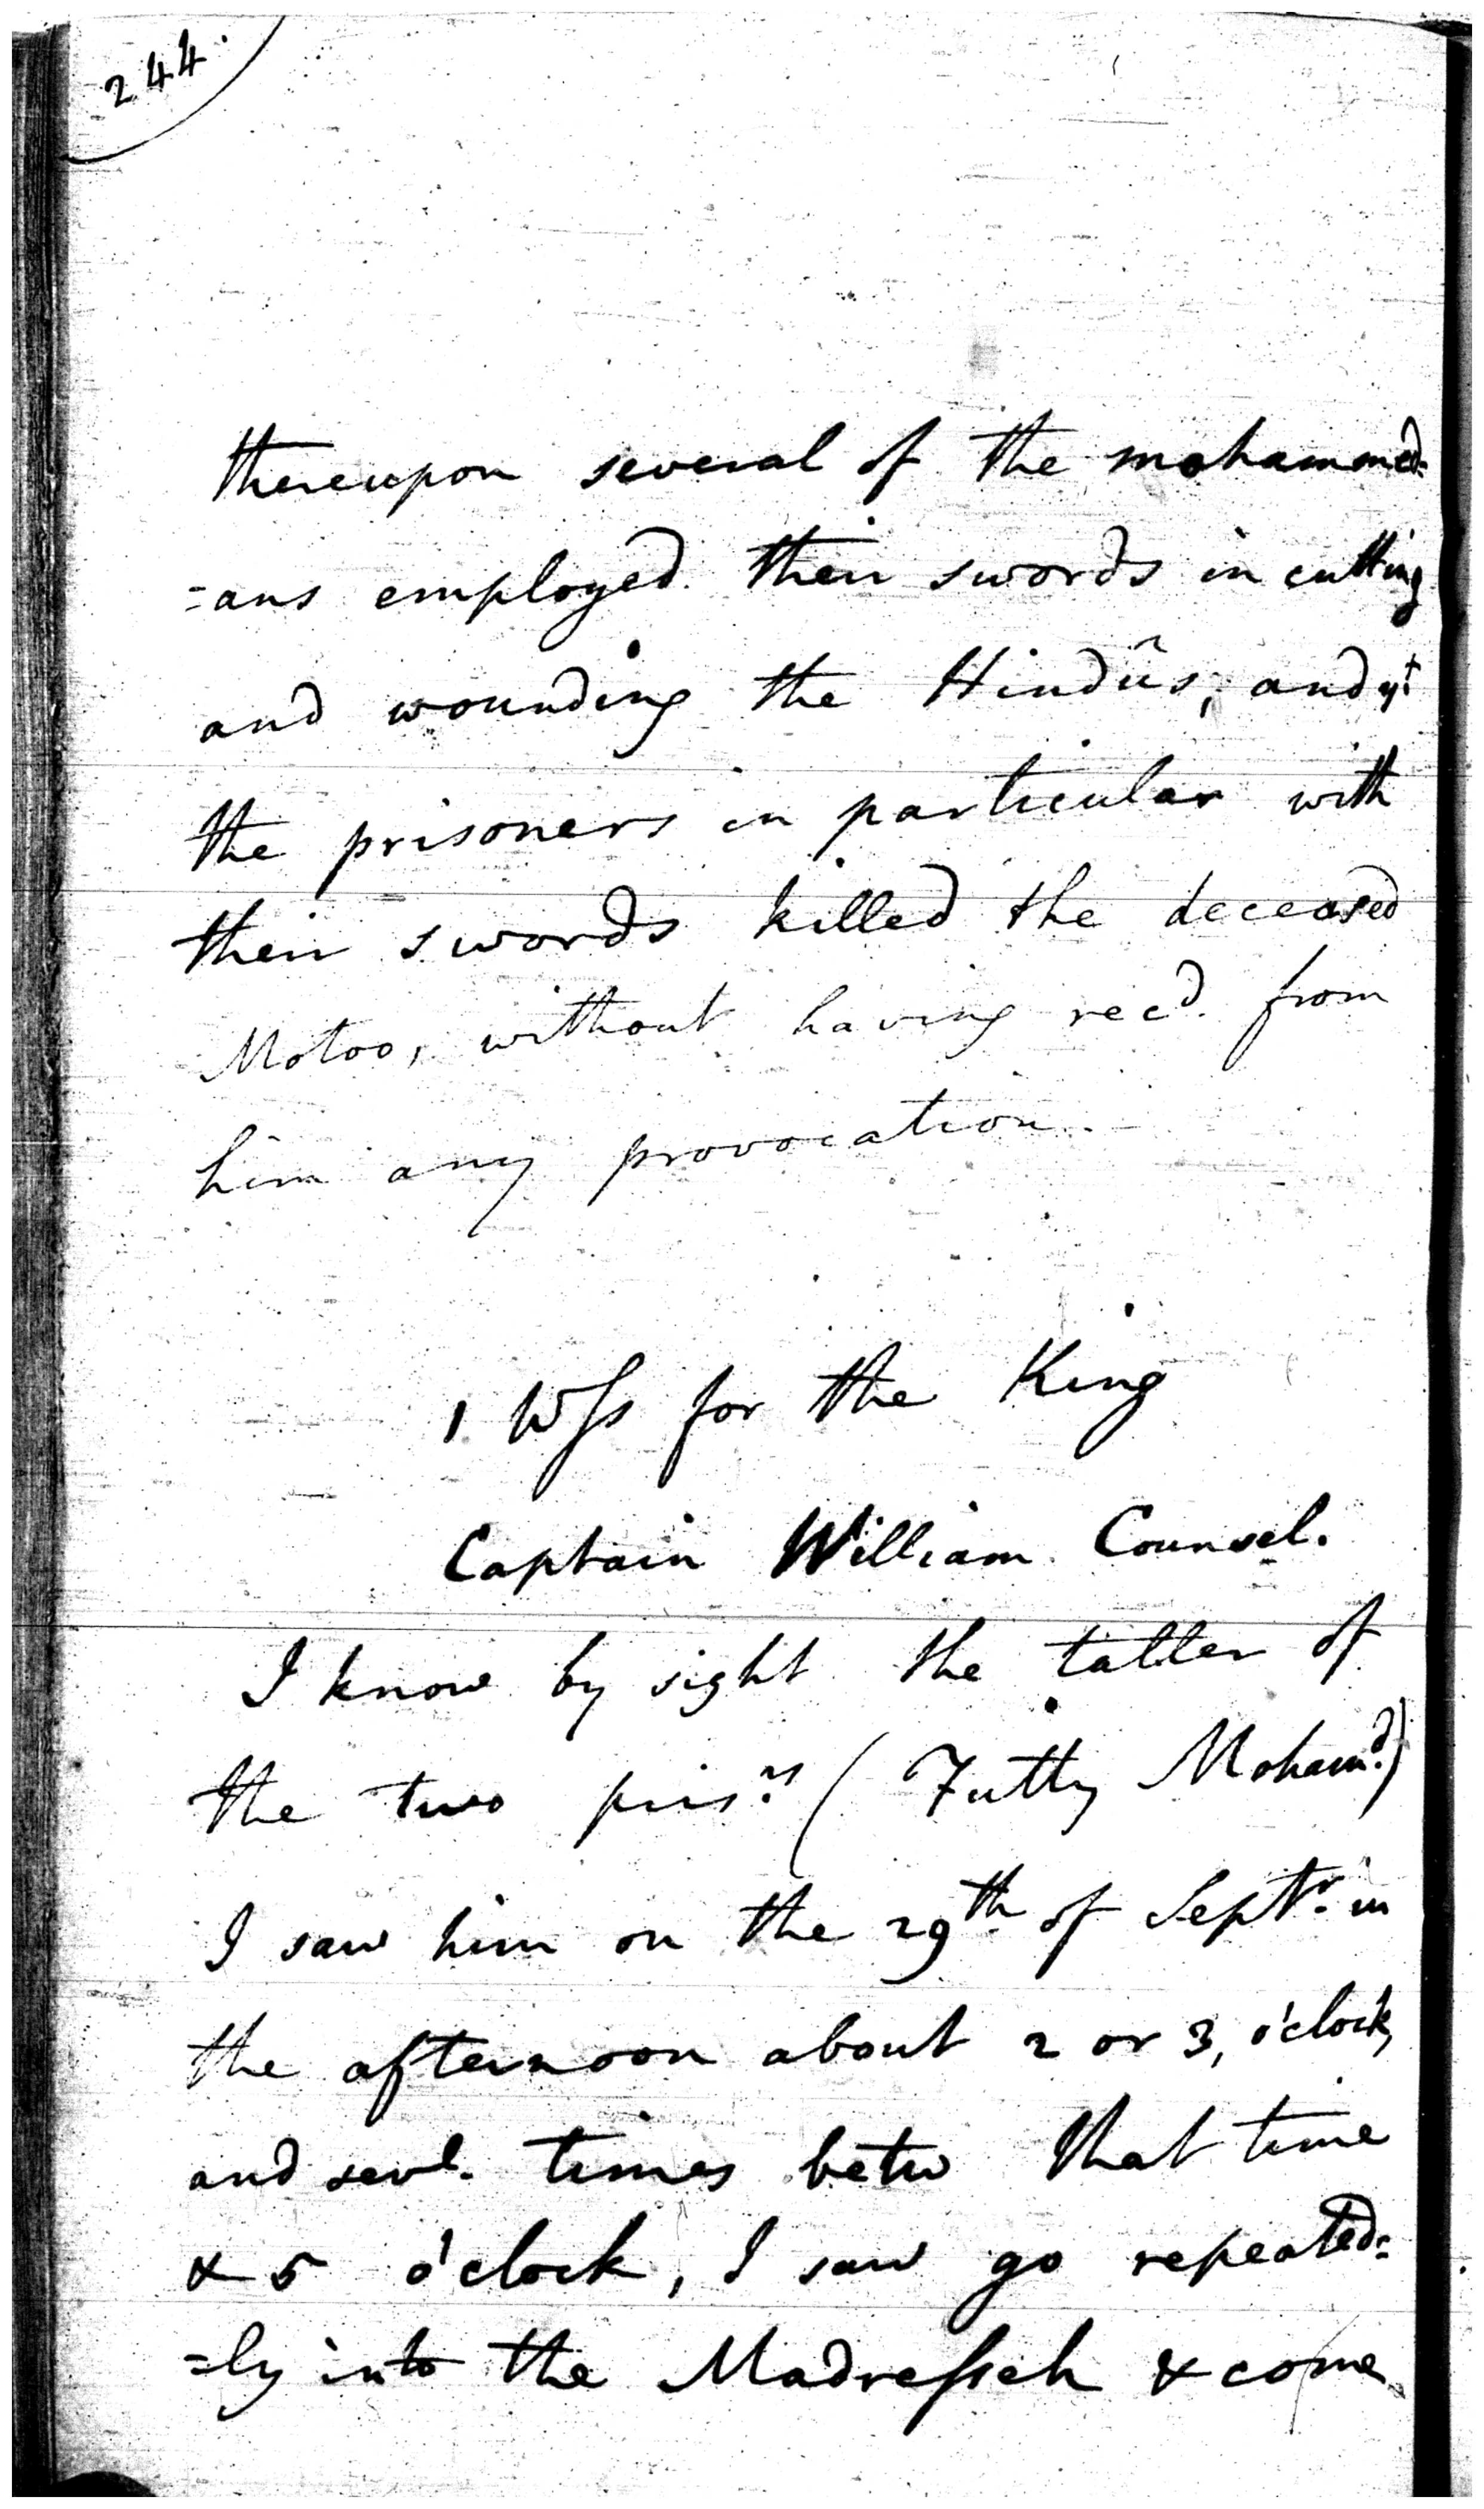 244.
thereupon several of the mohammed=
=ans employed their swords in cutting
and wounding the Hindûs, and yt.
the prisoners in particular with
their swords killed the deceased
Motoo, without having recd. from
him any provocation.
1 Wſs for the King
Captain William Counsel.
I know by sight the taller of
the two prisrs. (Futty Mohamd.)
I saw him on the 29th. of Septr. in
the afternoon about 2 or 3, o'clock,
and sevl. times betw that time
& 5 o'clock, I saw go repeated=
=ly into the Madreſseh & come